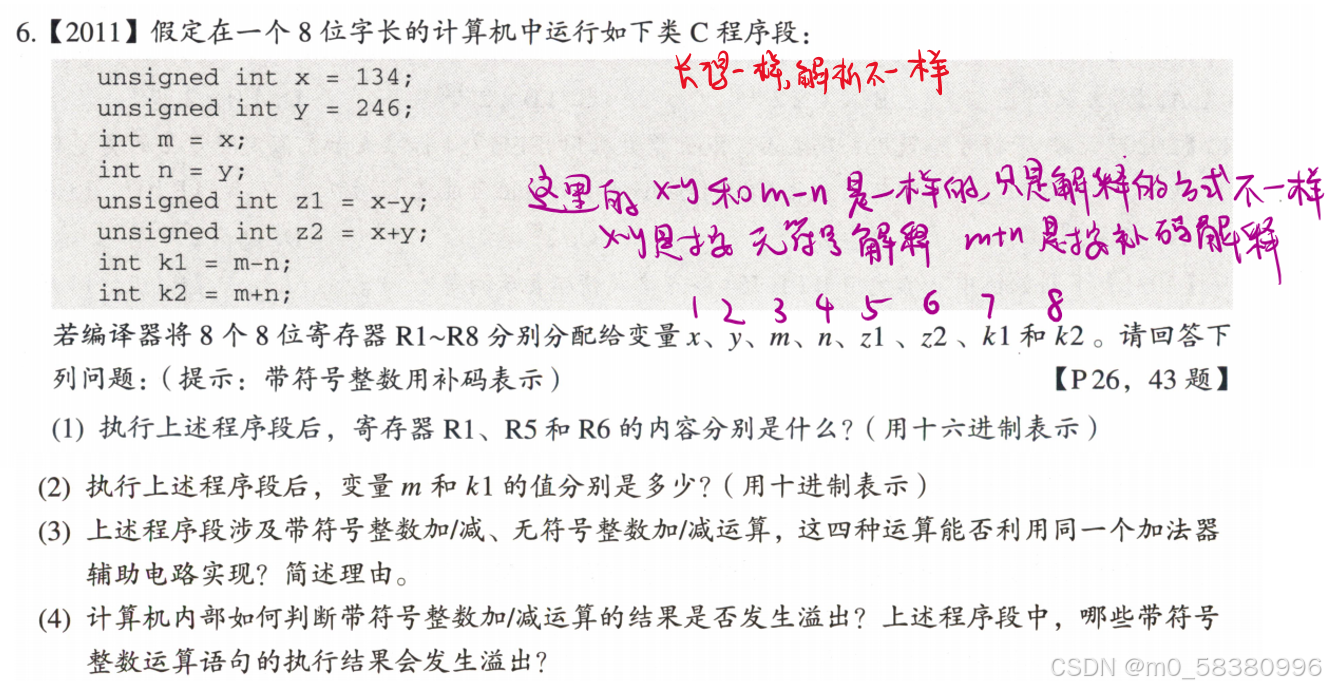 6.【2011】假定在一个 8 位字长的计算机中运行如下类 C 程序段：
长得一样,解析不一样
unsigned int x = 134;
unsigned int y = 246;
int m = x;
int n = y;
unsigned int z1 = x-y;
unsigned int z2 = x+y;
int k1 = m-n;
int k2 = m+n;
这里的 x-y 和 m-n 是一样的,只是解释的方式不一样
x-y是按 无符号解释 m+n 是按补码解释
1 2 3 4 5 6 7 8
若编译器将 8 个 8 位寄存器 R1~R8 分别分配给变量 x、y、m、n、z1 、z2 、k1 和 k2 。请回答下
列问题：（提示：带符号整数用补码表示）【P26，43 题】
(1) 执行上述程序段后，寄存器 R1、R5 和 R6 的内容分别是什么？（用十六进制表示）
(2) 执行上述程序段后，变量 m 和 k1 的值分别是多少？（用十进制表示）
(3) 上述程序段涉及带符号整数加/减、无符号整数加/减运算，这四种运算能否利用同一个加法器
辅助电路实现？简述理由。
(4) 计算机内部如何判断带符号整数加/减运算的结果是否发生溢出？上述程序段中，哪些带符号
整数运算语句的执行结果会发生溢出？
CSDN @m0_58380996